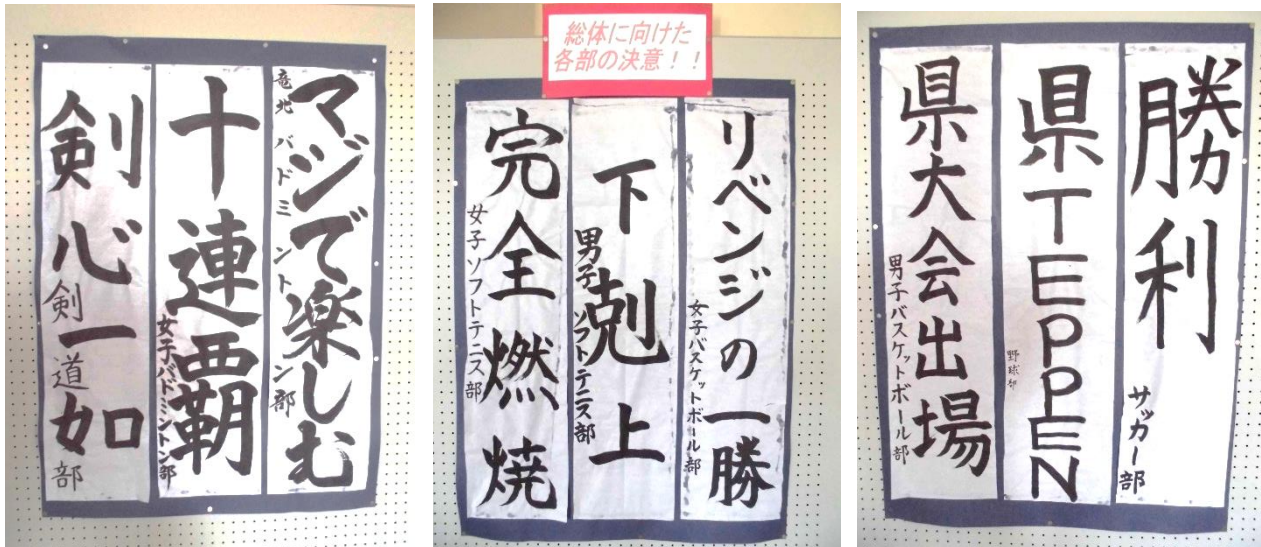 マジで楽しむ
竜北バドミントン部
十連覇
女子バドミントン部
剣心一如
剣道部
総体に向けた
各部の決意！！
リベンジの一勝
女子バスケットボール部
下剋上
男子ソフトテニス部
完全燃焼
女子ソフトテニス部
勝利
サッカー部
県TEPPEN
野球部
県大会出場
男子バスケットボール部